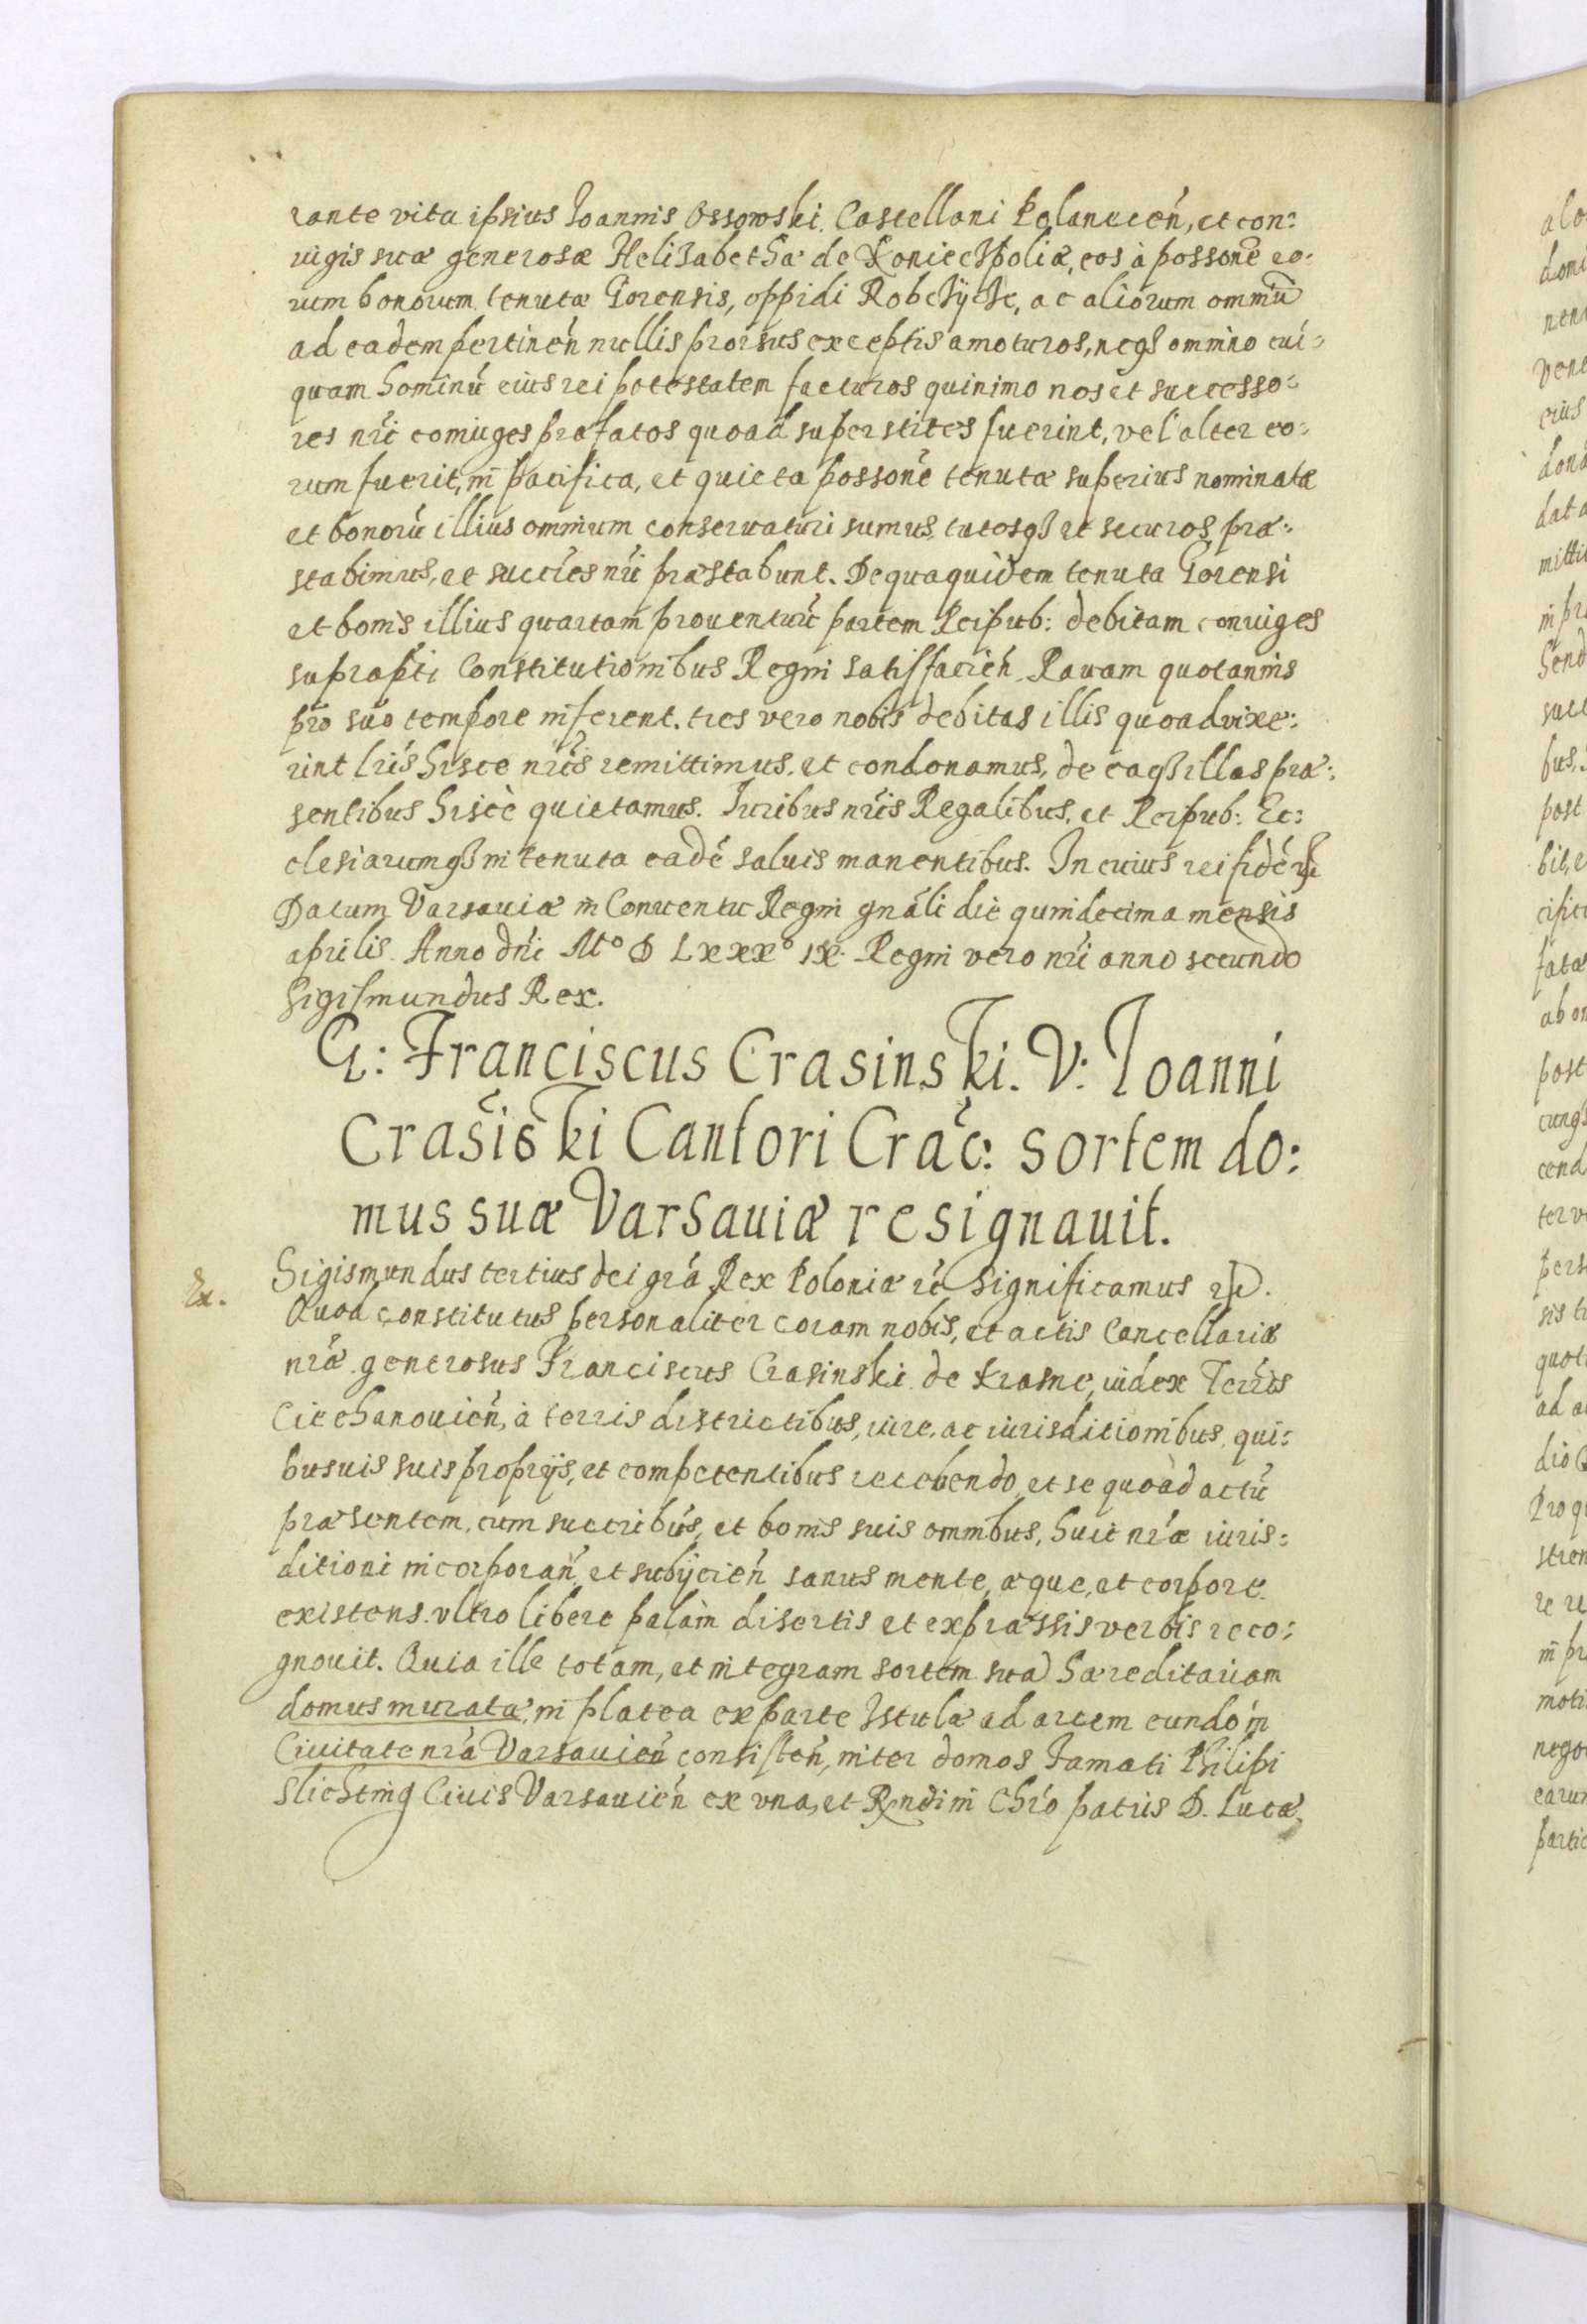 rante vita ipsius Ioannis Ossowski. Castellani Polaneceń, et con:
iugis suæ generosæ Helisabethæ de Koniecspoliæ, eos à possone eo:
rum bonorum tenutæ Gorensis, oppidi Robczycze, ac aliorum omniū
ad eadem pertineń nullis prorsus exceptis amoturos, neqꝫ omnino cui:
quam hominū eius rei potestatem facturos quinimo nos et successo:
res nr̃i coniuges præfatos quoad superstites fuerint, vel alter eo:
rum fuerit, in pacifica, et quieta possone tenutæ superius nominatæ
et bonorū illius omnium conseruaturi sumus, tutosqꝫ et securos præ:
stabimus, et succr̃es nr̃i præstabunt. De qua quidem tenuta Gorensi
et bonis illius quartam prouentuū partem Reipub: debitam coniuges
suprapti Constitutionibus Regni satisfacień Rauam quotannis
pro suo tempore inferent. tres vero nobis debitas illis quoad vixe:
rint lr̃is hisce nr̃is remittimus, et condonamus, de eaqꝫ illas præ:
sentibus hisce quietamus. Iuribus nr̃is Regalibus, et Reipub: Ec:
clesiarumqꝫ in tenuta eadē saluis manentibus. In cuius rei fidē ꝛc
Datum Varsauiæ in Conuentu Regni gnāli die quindecima mensis
aprilis. Anno dni Mᵒ D Lxxxᵒ ix. Regni vero nr̃i anno secundo
Sigismundus Rex.
G: Franciscus Crasinski. V: Ioanni
Crasiski Cantori Crac: sortem do:
mus suæ Varsauiæ resignauit.
Ex.
Sigismundus tertius dei grã Rex Poloniæ ꝛc Significamus ꝛc.
Quod constitutus personaliter coram nobis, et actis Cancellariæ
nr̃æ generosus Franciscus Crasinski de Krasne, iudex Terris
Ciechanouień, à terris districtibus, iure, ac iurisditionibus, qui:
busuis suis proprijs, et competentibus recedendo, et se quoad actū
præsentem, cum succribus, et bonis suis omnibus, huic nr̃æ iuris:
ditioni incorporań et subijcień sanus mente, æque, et corpore
existens. vltro libere palam disertis et expræssis verbis reco:
gnouit. Quia ille totam, et integram sortem suā hæreditariam
domus muratæ, in platea ex parte Istulæ ad arcem eundo in
Ciuitate nr̃a Varsauień consisteń, inter domos Famati Philipi
Slichting Ciuis Varsauień ex vna, et Rndi in Chr̃o patris D. Lucæ